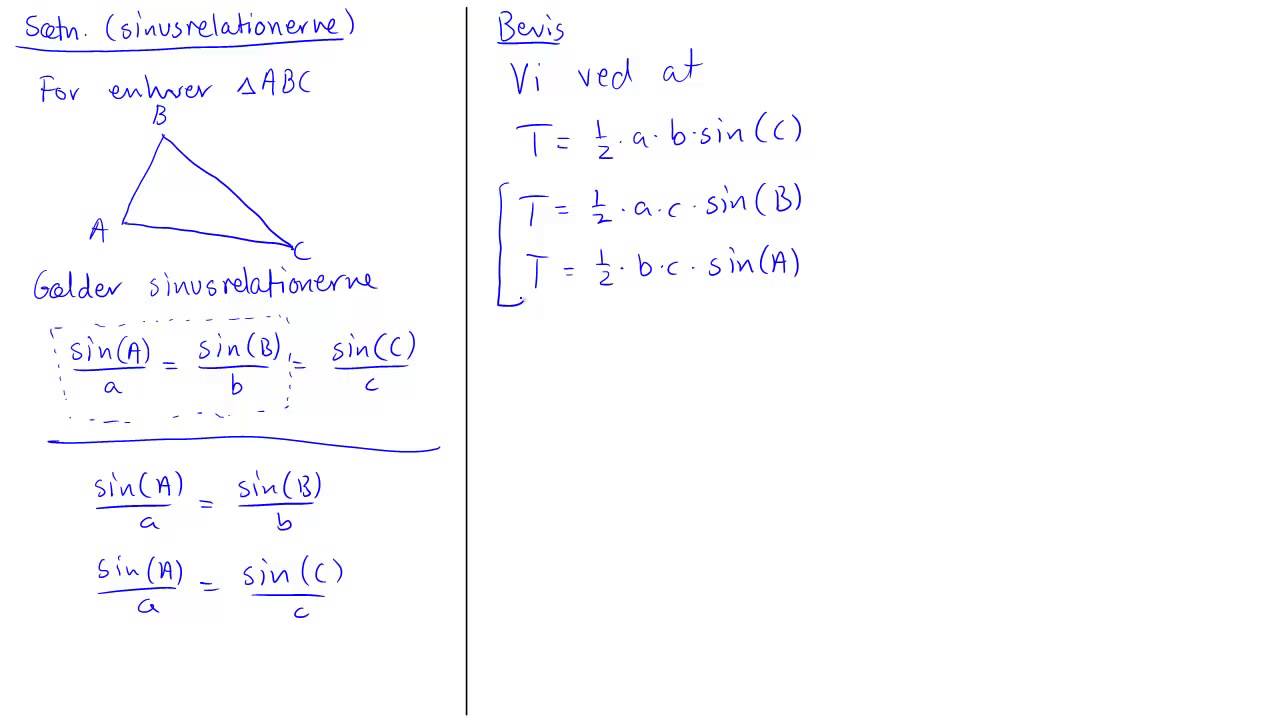 Sætn. (sinusrelationerne)
For enhver △ABC
B
A
C
Gælder sinusrelationerne
sin(A)/a = sin(B)/b = sin(C)/c
sin(A)/a = sin(B)/b
sin(A)/a = sin(C)/c
Bevis
Vi ved at
T = 1/2 · a · b · sin(C)
T = 1/2 · a · c · sin(B)
T = 1/2 · b · c · sin(A)